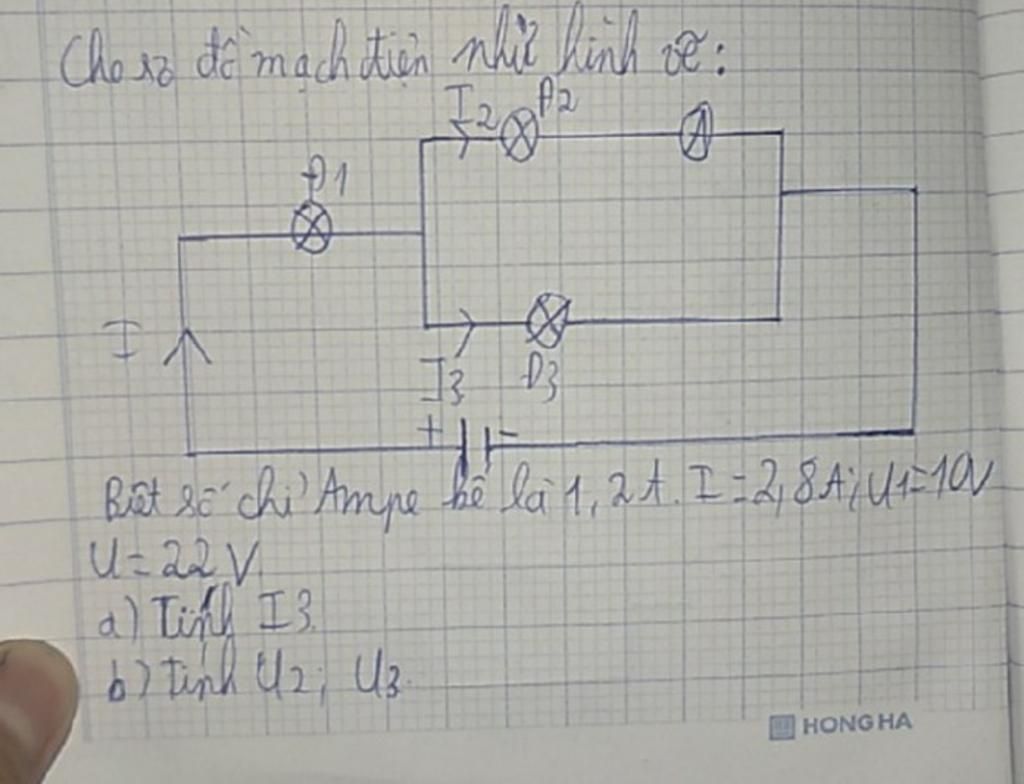 Cho sơ đồ mạch điện như hình vẽ:
I2 Đ2 A
Đ1
I
I3 Đ3
+ -
Biết số chỉ Ampe kế là 1,2A. I=2,8A; U1=10V
U=22V
a) Tính I3.
b) Tính U2; U3.
HONG HA